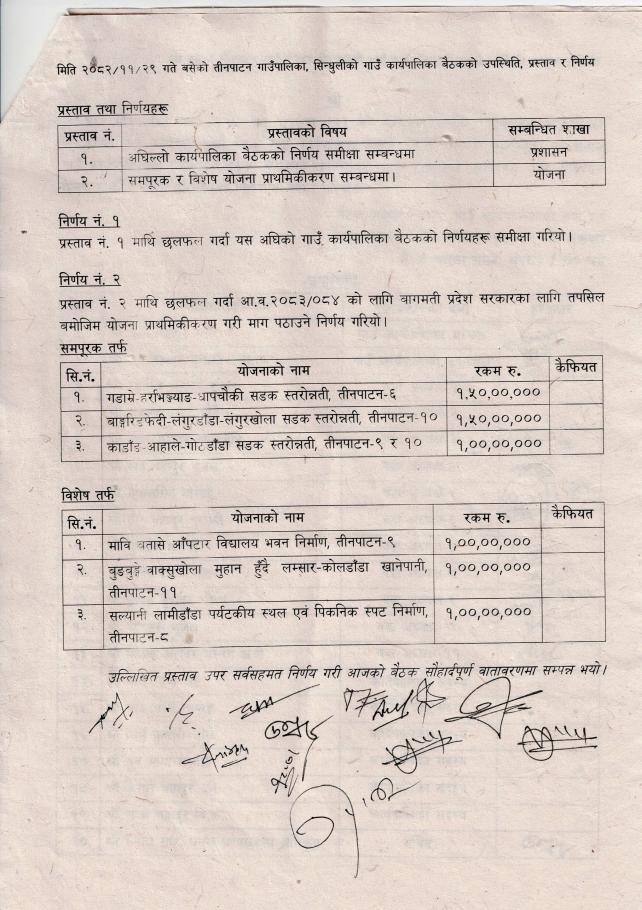 मिति २०८२/११/२९ गते बसेको तीनपाटन गाउँपालिका, सिन्धुलीको गाउँ कार्यपालिका बैठकको उपस्थिति, प्रस्ताव र निर्णय
प्रस्ताव तथा निर्णयहरू
प्रस्ताव नं. प्रस्तावको विषय सम्बन्धित शाखा
१. अघिल्लो कार्यपालिका बैठकको निर्णय समीक्षा सम्बन्धमा प्रशासन
२. समपूरक र विशेष योजना प्राथमिकीकरण सम्बन्धमा। योजना
निर्णय नं. १
प्रस्ताव नं. १ माथि छलफल गर्दा यस अघिको गाउँ कार्यपालिका बैठकको निर्णयहरू समीक्षा गरियो।
निर्णय नं. २
प्रस्ताव नं. २ माथि छलफल गर्दा आ.व.२०८३/०८४ को लागि बागमती प्रदेश सरकारका लागि तपसिल
बमोजिम योजना प्राथमिकीकरण गरी माग पठाउने निर्णय गरियो।
समपूरक तर्फ
सि.नं. योजनाको नाम रकम रु. कैफियत
१. सडक स्तरोन्नती, तीनपाटन-६ १,५०,००,०००
२. सडक स्तरोन्नती, तीनपाटन-१० १,५०,००,०००
३. सडक स्तरोन्नती, तीनपाटन-९ र १० १,००,००,०००
विशेष तर्फ
सि.नं. योजनाको नाम रकम रु. कैफियत
१. मावि बतासे आँपटार विद्यालय भवन निर्माण, तीनपाटन-९ १,००,००,०००
२. मुहान हुँदै लम्सार-कोलडाँडा खानेपानी, १,००,००,०००
तीनपाटन-११
३. सल्यानी लामीडाँडा पर्यटकीय स्थल एवं पिकनिक स्पट निर्माण, १,००,००,०००
तीनपाटन-८
उल्लिखित प्रस्ताव उपर सर्वसहमत निर्णय गरी आजको बैठक सौहार्दपूर्ण वातावरणमा सम्पन्न भयो।